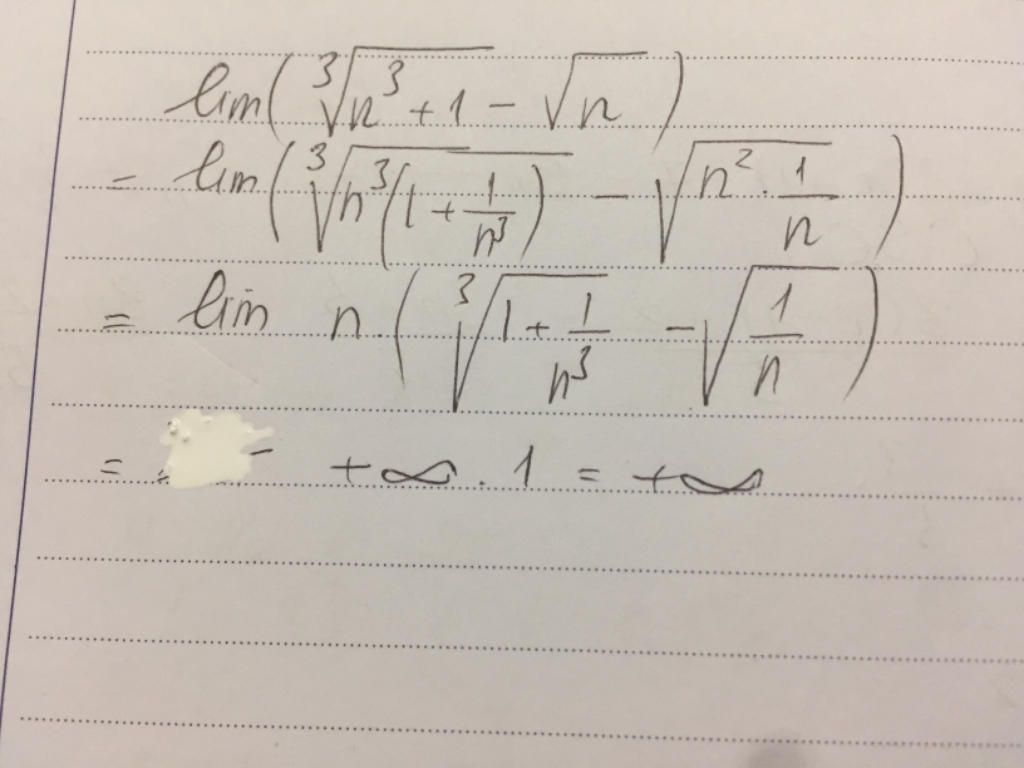 lim(∛(n³ + 1) − √n)
= lim(∛(n³(1 + 1/n³)) − √(n² · 1/n))
= lim n · (∛(1 + 1/n³) − √(1/n))
= +∞ · 1 = +∞